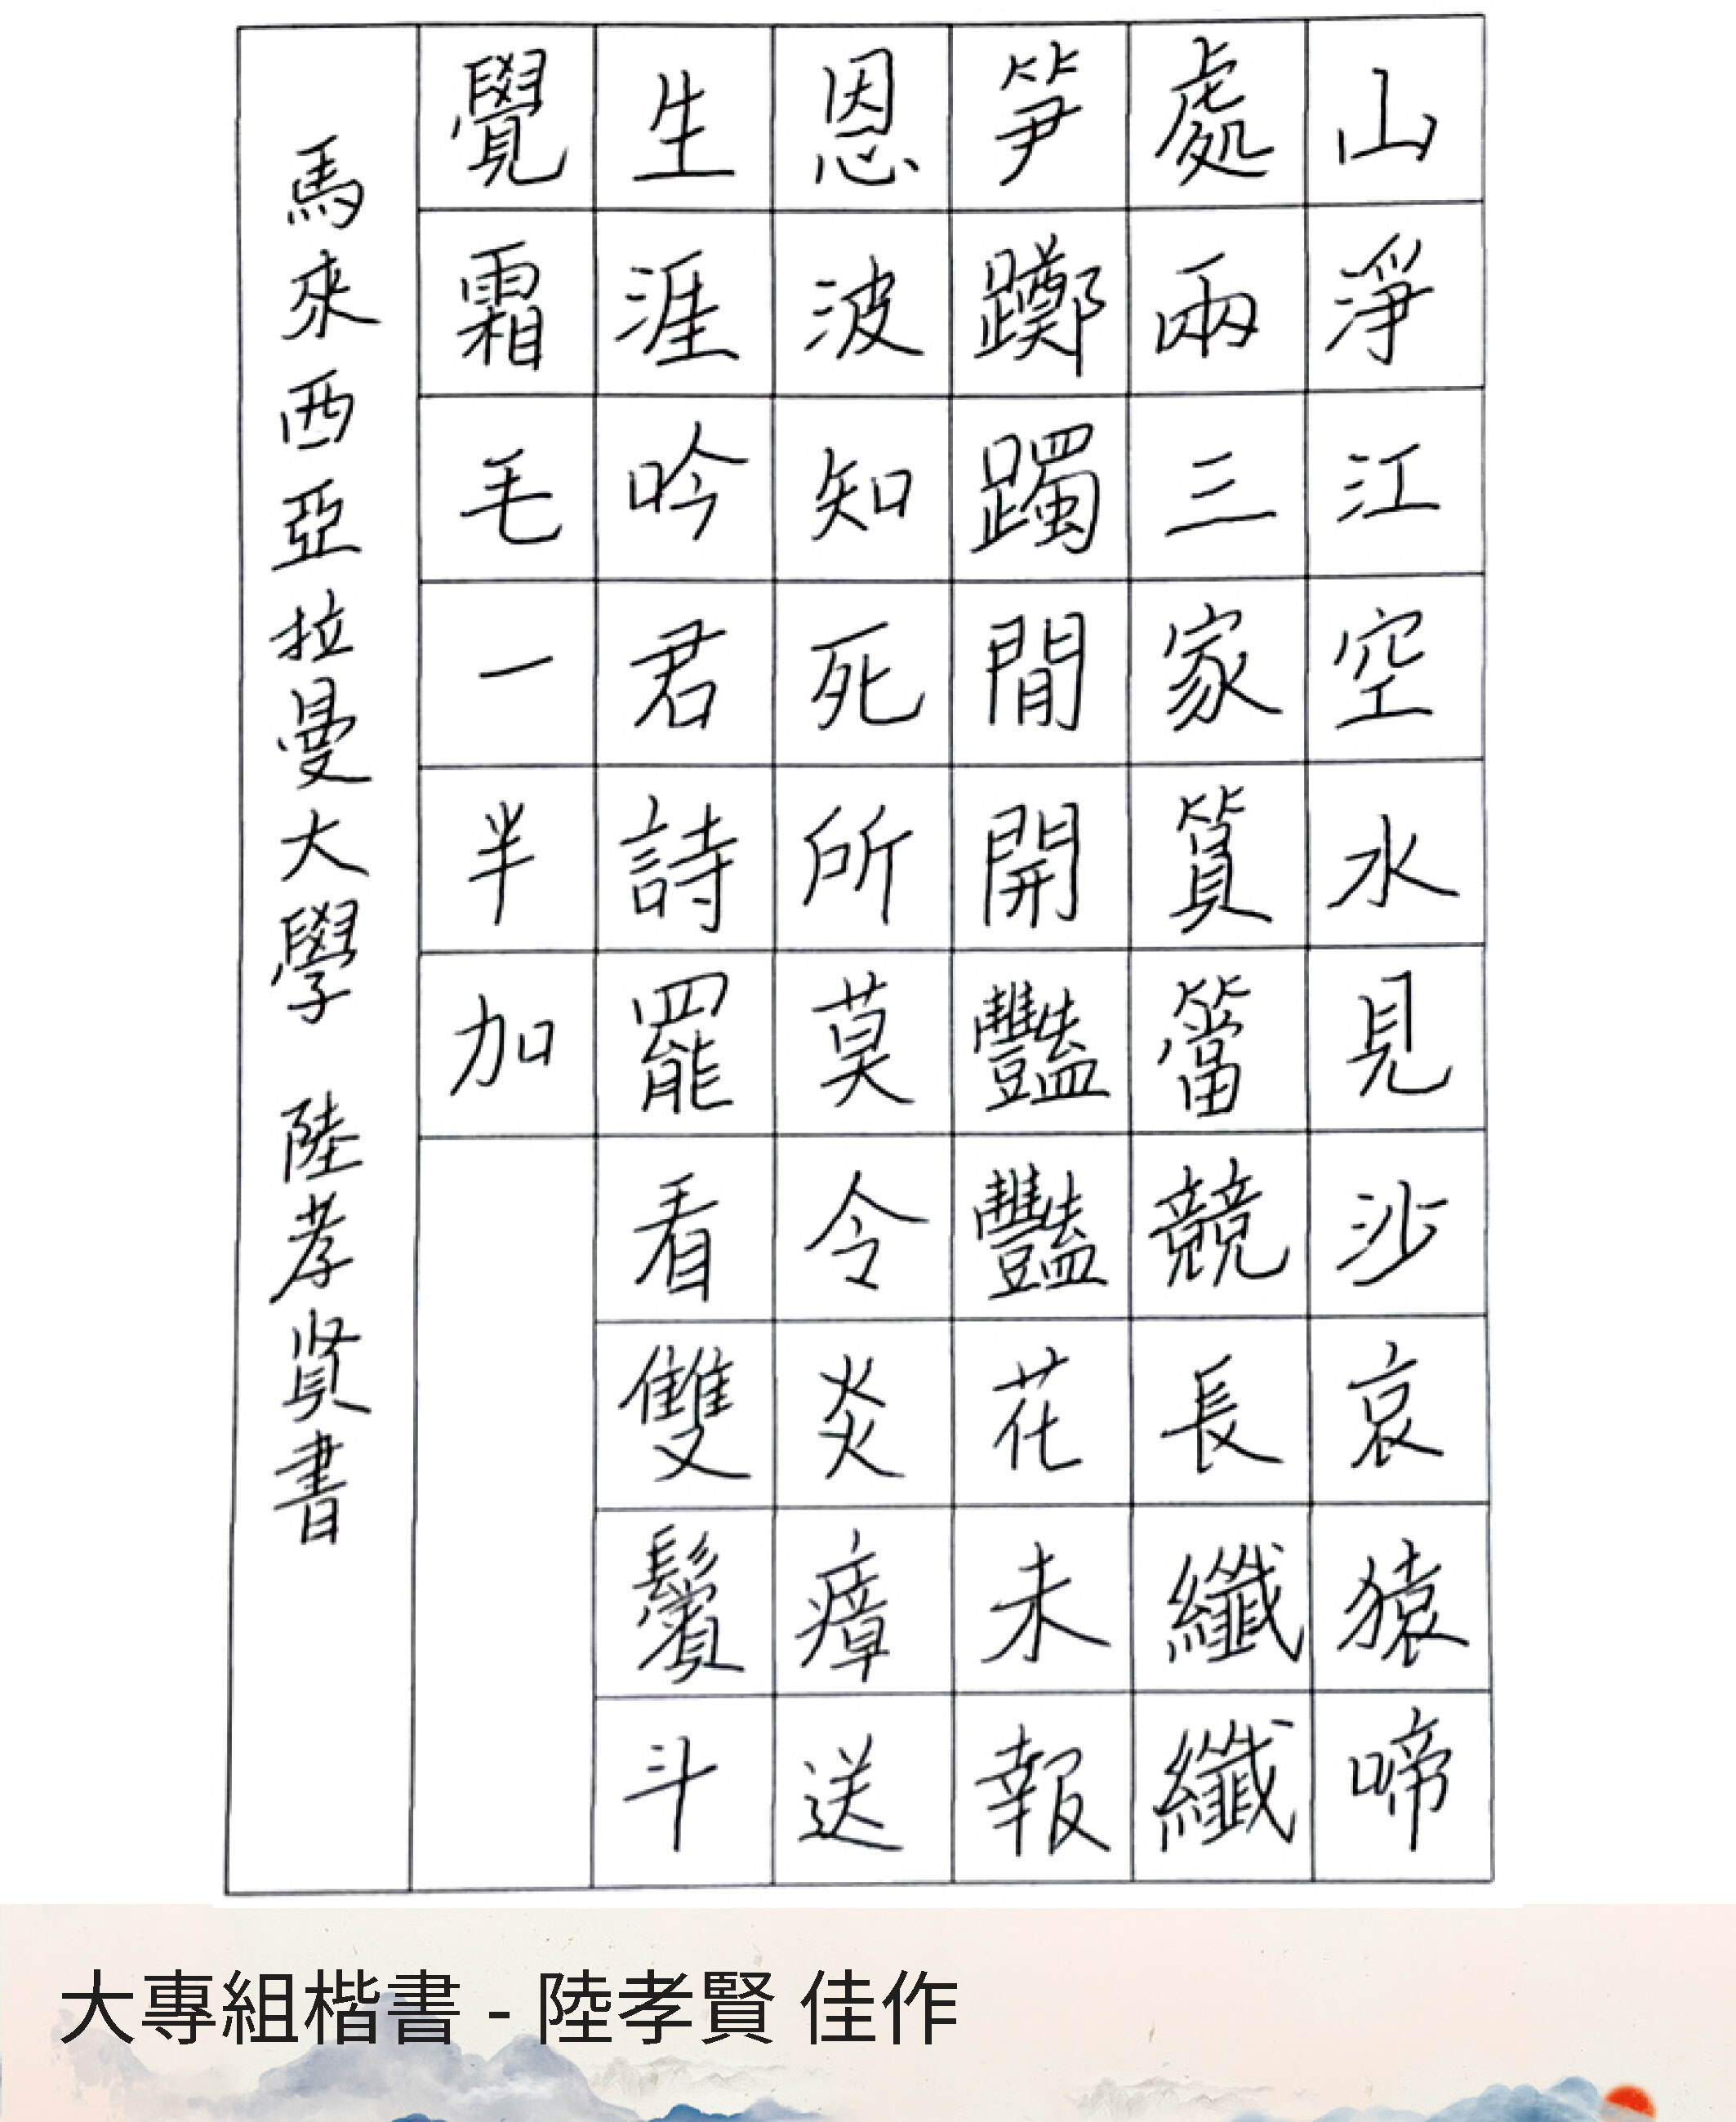 山淨江空水見沙哀猿啼
處兩三家篔簹競長纖纖
笋躑躅閒開豔豔花未報
恩波知死所莫令炎瘴送
生涯吟君詩罷看雙鬢斗
覺霜毛一半加
馬來西亞拉曼大學 陸孝賢書
大專組楷書 - 陸孝賢 佳作